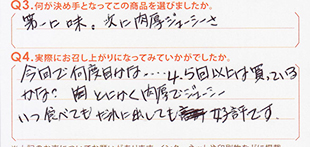 Q3.何が決め手となってこの商品を選びましたか。
第一に味。次に肉厚ジューシーさ
Q4.実際にお召し上がりになってみていかがでしたか。
今回で何度目かな‥‥4.5回以上は買っている
かな? とにかく肉厚でジューシー
いつ食べてもだれに出しても好評です。